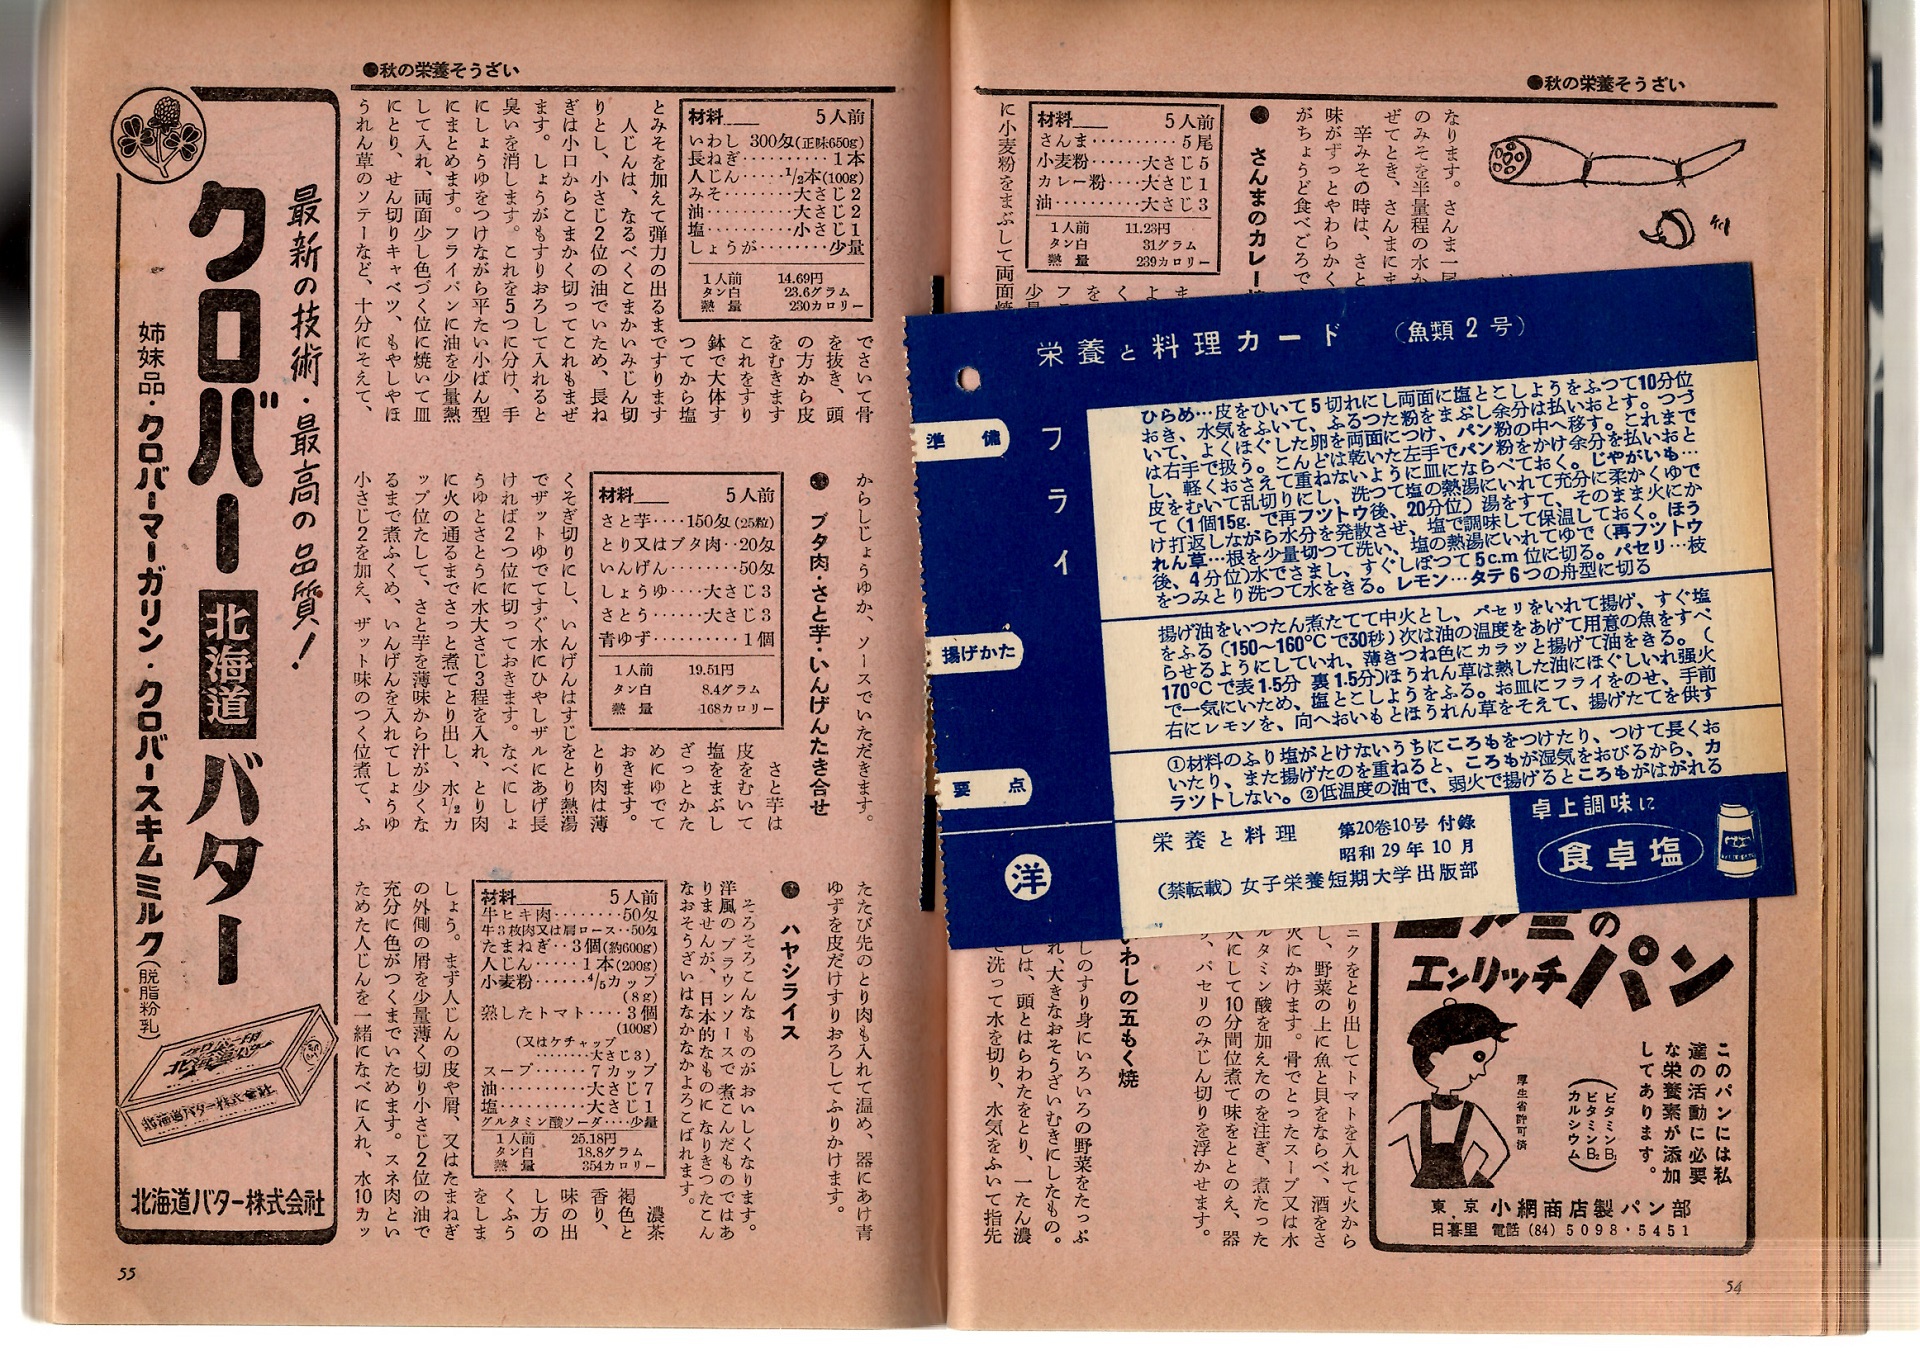 ●秋の栄養そうざい
なります。さんま一尾
のみそを半量程の水か
ぜてとき、さんまにま
味がずっとやわらかく
がちょうど食べごろで
辛みその時は、さと
● さんまのカレー
材料 5人前
さんま‥‥‥‥‥5尾
小麦粉‥‥‥大さじ5
カレー粉‥‥大さじ1
油‥‥‥‥‥大さじ3
1人前 11.23円
タン白 31グラム
熱量 239カロリー
に小麦粉をまぶして両面焼
栄養と料理カード (魚類2号)
フライ
準備
ひらめ…皮をひいて5切れにし両面に塩とこしようをふつて10分位
おき、水気をふいて、ふるつた粉をまぶし余分は払いおとす。つづ
いて、よくほぐした卵を両面につけ、パン粉の中へ移す。これまで
は右手で扱う。こんどは乾いた左手でパン粉をかけ余分を払いおと
し、軽くおさえて重ねないように皿にならべておく。じやがいも…
皮をむいて乱切りにし、洗つて塩の熱湯にいれて充分に柔かくゆで
て(1個15g.で再フツトウ後、20分位)湯をすて、そのまま火にか
け打返しながら水分を発散させ、塩で調味して保温しておく。ほう
れん草…根を少量切つて洗い、塩の熱湯にいれてゆで(再フツトウ
後、4分位)水でさまし、すぐしぼつて5cm位に切る。パセリ…枝
をつみとり洗つて水をきる。レモン…タテ6つの舟型に切る
揚げかた
揚げ油をいつたん煮たてて中火とし、パセリをいれて揚げ、すぐ塩
をふる(150〜160°Cで30秒)次は油の温度をあげて用意の魚をすべ
らせるようにしていれ、薄きつね色にカラッと揚げて油をきる。(
170°Cで表1.5分 裏1.5分)ほうれん草は熱した油にほぐしいれ強火
で一気にいため、塩とこしようをふる。お皿にフライをのせ、手前
右にレモンを、向へおいもとほうれん草をそえて、揚げたてを供す
要点
①材料のふり塩がとけないうちにころもをつけたり、つけて長くお
いたり、また揚げたのを重ねると、ころもが湿気をおびるから、カ
ラツトしない。②低温度の油で、弱火で揚げるところもがはがれる
洋
栄養と料理 第20巻10号 付録
昭和29年10月
(禁転載)女子栄養短期大学出版部
卓上調味に
食卓塩
エンリッチパン
このパンには私
達の活動に必要
な栄養素が添加
してあります。
(ビタミンB₁
ビタミンB₂
カルシウム)
厚生省許可済
東京 小網商店製パン部
日暮里 電話(84)5098・5451
ニクをとり出してトマトを入れて火から
し、野菜の上に魚と貝をならべ、酒をさ
火にかけます。骨でとったスープ又は水
ルタミン酸を加えたのを注ぎ、煮たった
人にして10分間位煮て味をととのえ、器
、パセリのみじん切りを浮かせます。
いわしの五もく焼
しのすり身にいろいろの野菜をたっぷ
れ、大きなおそうざいむきにしたもの。
しは、頭とはらわたをとり、一たん濃
で洗って水を切り、水気をふいて指先
54
●秋の栄養そうざい
材料 5人前
いわし 300匁(正味650g)
長ねぎ‥‥‥‥‥1本
人じん‥‥‥½本(100g)
みそ‥‥‥‥大さじ2
油‥‥‥‥‥大さじ2
塩‥‥‥‥‥小さじ1
しょうが‥‥‥‥少量
1人前 14.69円
タン白 23.6グラム
熱量 230カロリー
でさいて骨
を抜き、頭
の方から皮
をむきます
これをすり
鉢で大体す
つてから塩
とみそを加えて弾力の出るまですります
人じんは、なるべくこまかいみじん切
りとし、小さじ2位の油でいため、長ね
ぎは小口からこまかく切ってこれもまぜ
ます。しょうがもすりおろして入れると
臭いを消します。これを5つに分け、手
にしょうゆをつけながら平たい小ばん型
にまとめます。フライパンに油を少量熱
して入れ、両面少し色づく位に焼いて皿
にとり、せん切りキャベツ、もやしやほ
うれん草のソテーなど、十分にそえて、
からしじょうゆか、ソースでいただきます。
● ブタ肉・さと芋・いんげんたき合せ
材料 5人前
さと芋‥‥150匁(25粒)
とり又はブタ肉‥20匁
いんげん‥‥‥‥50匁
しょうゆ‥‥大さじ3
さとう‥‥‥大さじ3
青ゆず‥‥‥‥‥1個
1人前 19.51円
タン白 8.4グラム
熱量 168カロリー
さと芋は
皮をむいて
塩をまぶし
ざっとかた
めにゆでて
おきます。
とり肉は薄
くそぎ切りにし、いんげんはすじをとり熱湯
でザットゆでてすぐ水にひやしザルにあげ長
ければ2つ位に切っておきます。なべにしょ
うゆとさとうに水大さじ3程を入れ、とり肉
に火の通るまでさっと煮てとり出し、水½カ
ップ位たして、さと芋を薄味から汁が少くな
るまで煮ふくめ、いんげんを入れてしょうゆ
小さじ2を加え、ザット味のつく位煮て、ふ
たたび先のとり肉も入れて温め、器にあけ青
ゆずを皮だけすりおろしてふりかけます。
● ハヤシライス
そろそろこんなものがおいしくなります。
洋風のブラウンソースで煮こんだものではあ
りませんが、日本的なものになりきつたこん
なおそうざいはなかなかよろこばれます。
材料 5人前
牛ヒキ肉‥‥‥‥50匁
牛3枚肉又は肩ロース‥50匁
たまねぎ‥3個(約600g)
人じん‥‥‥1本(200g)
小麦粉‥‥‥⅘カップ
(8g)
熟したトマト‥‥3個
(100g)
(又はケチャップ
‥‥‥‥大さじ3)
スープ‥‥‥7カップ
油‥‥‥‥‥大さじ7
塩‥‥‥‥‥大さじ1
グルタミン酸ソーダ‥‥少量
1人前 25.18円
タン白 18.8グラム
熱量 354カロリー
濃茶
褐色と
香り、
味の出
し方の
くふう
をしま
しょう。まず人じんの皮や屑、又はたまねぎ
の外側の屑を少量薄く切り小さじ2位の油で
充分に色がつくまでいためます。スネ肉とい
ためた人じんを一緒になべに入れ、水10カッ
最新の技術・最高の品質!
クロバー北海道バター
姉妹品・クロバーマーガリン・クロバースキムミルク(脱脂粉乳)
クロバー印
北海道バター
北海道バター株式会社
北海道バター株式会社
55